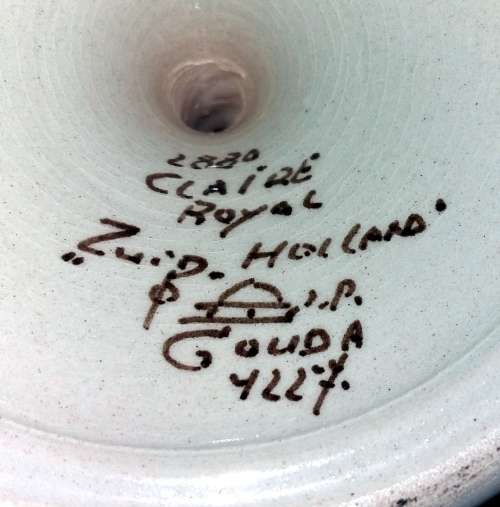 2880
CLAiRE
ROYAL
„ZUiD. HOLLAND"
GOUDA
4227.